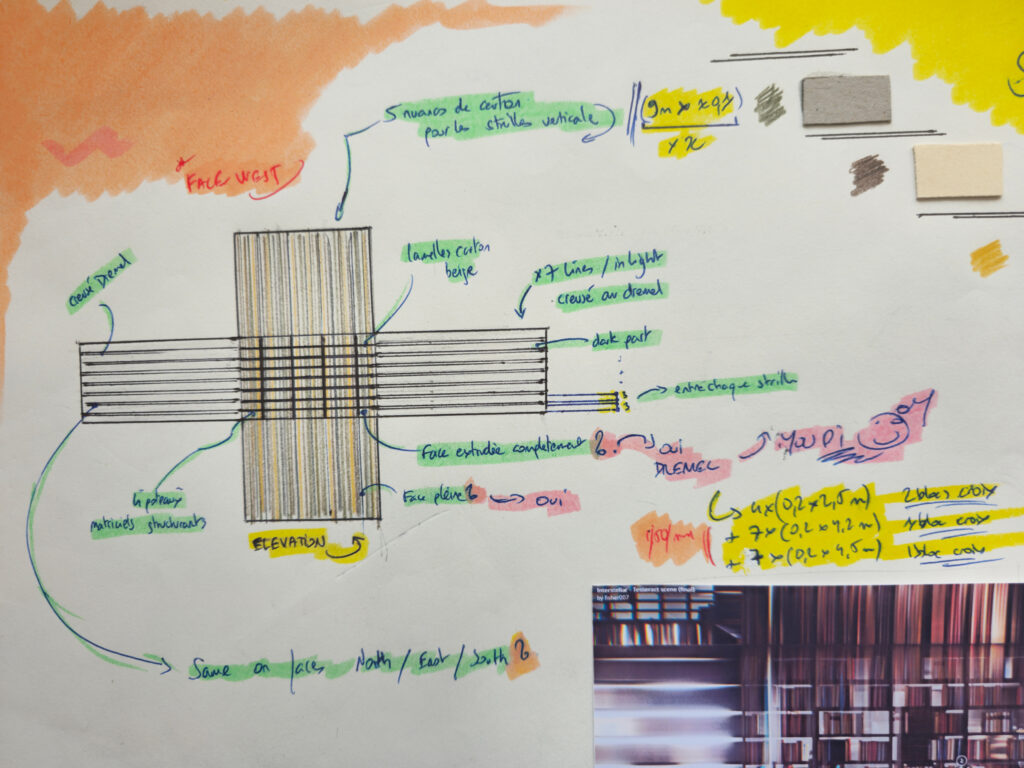 5 nuances de carton
pour les strilles verticale
(9m x x 9
x x
* FACE WEST
creusé Dremel
lamelles carton
beige
x7 lines / in light
creusé au dremel
dark part
entre chaque strille
Face estrudée completement ?
oui
DREMEL
Youpi
Face pleine ? oui
4 poteaux
matriciels structurants
ELEVATION
4x(0,2x2,5m) 2 blocs croix
+ 7x(0,2x4,2m) 1 bloc croix
+ 7x(0,2x4,5m) 1 bloc croix
1/50/mm
Same on faces North / East / South ?
Interstellar - Tesseract scene (final)
by fisher007